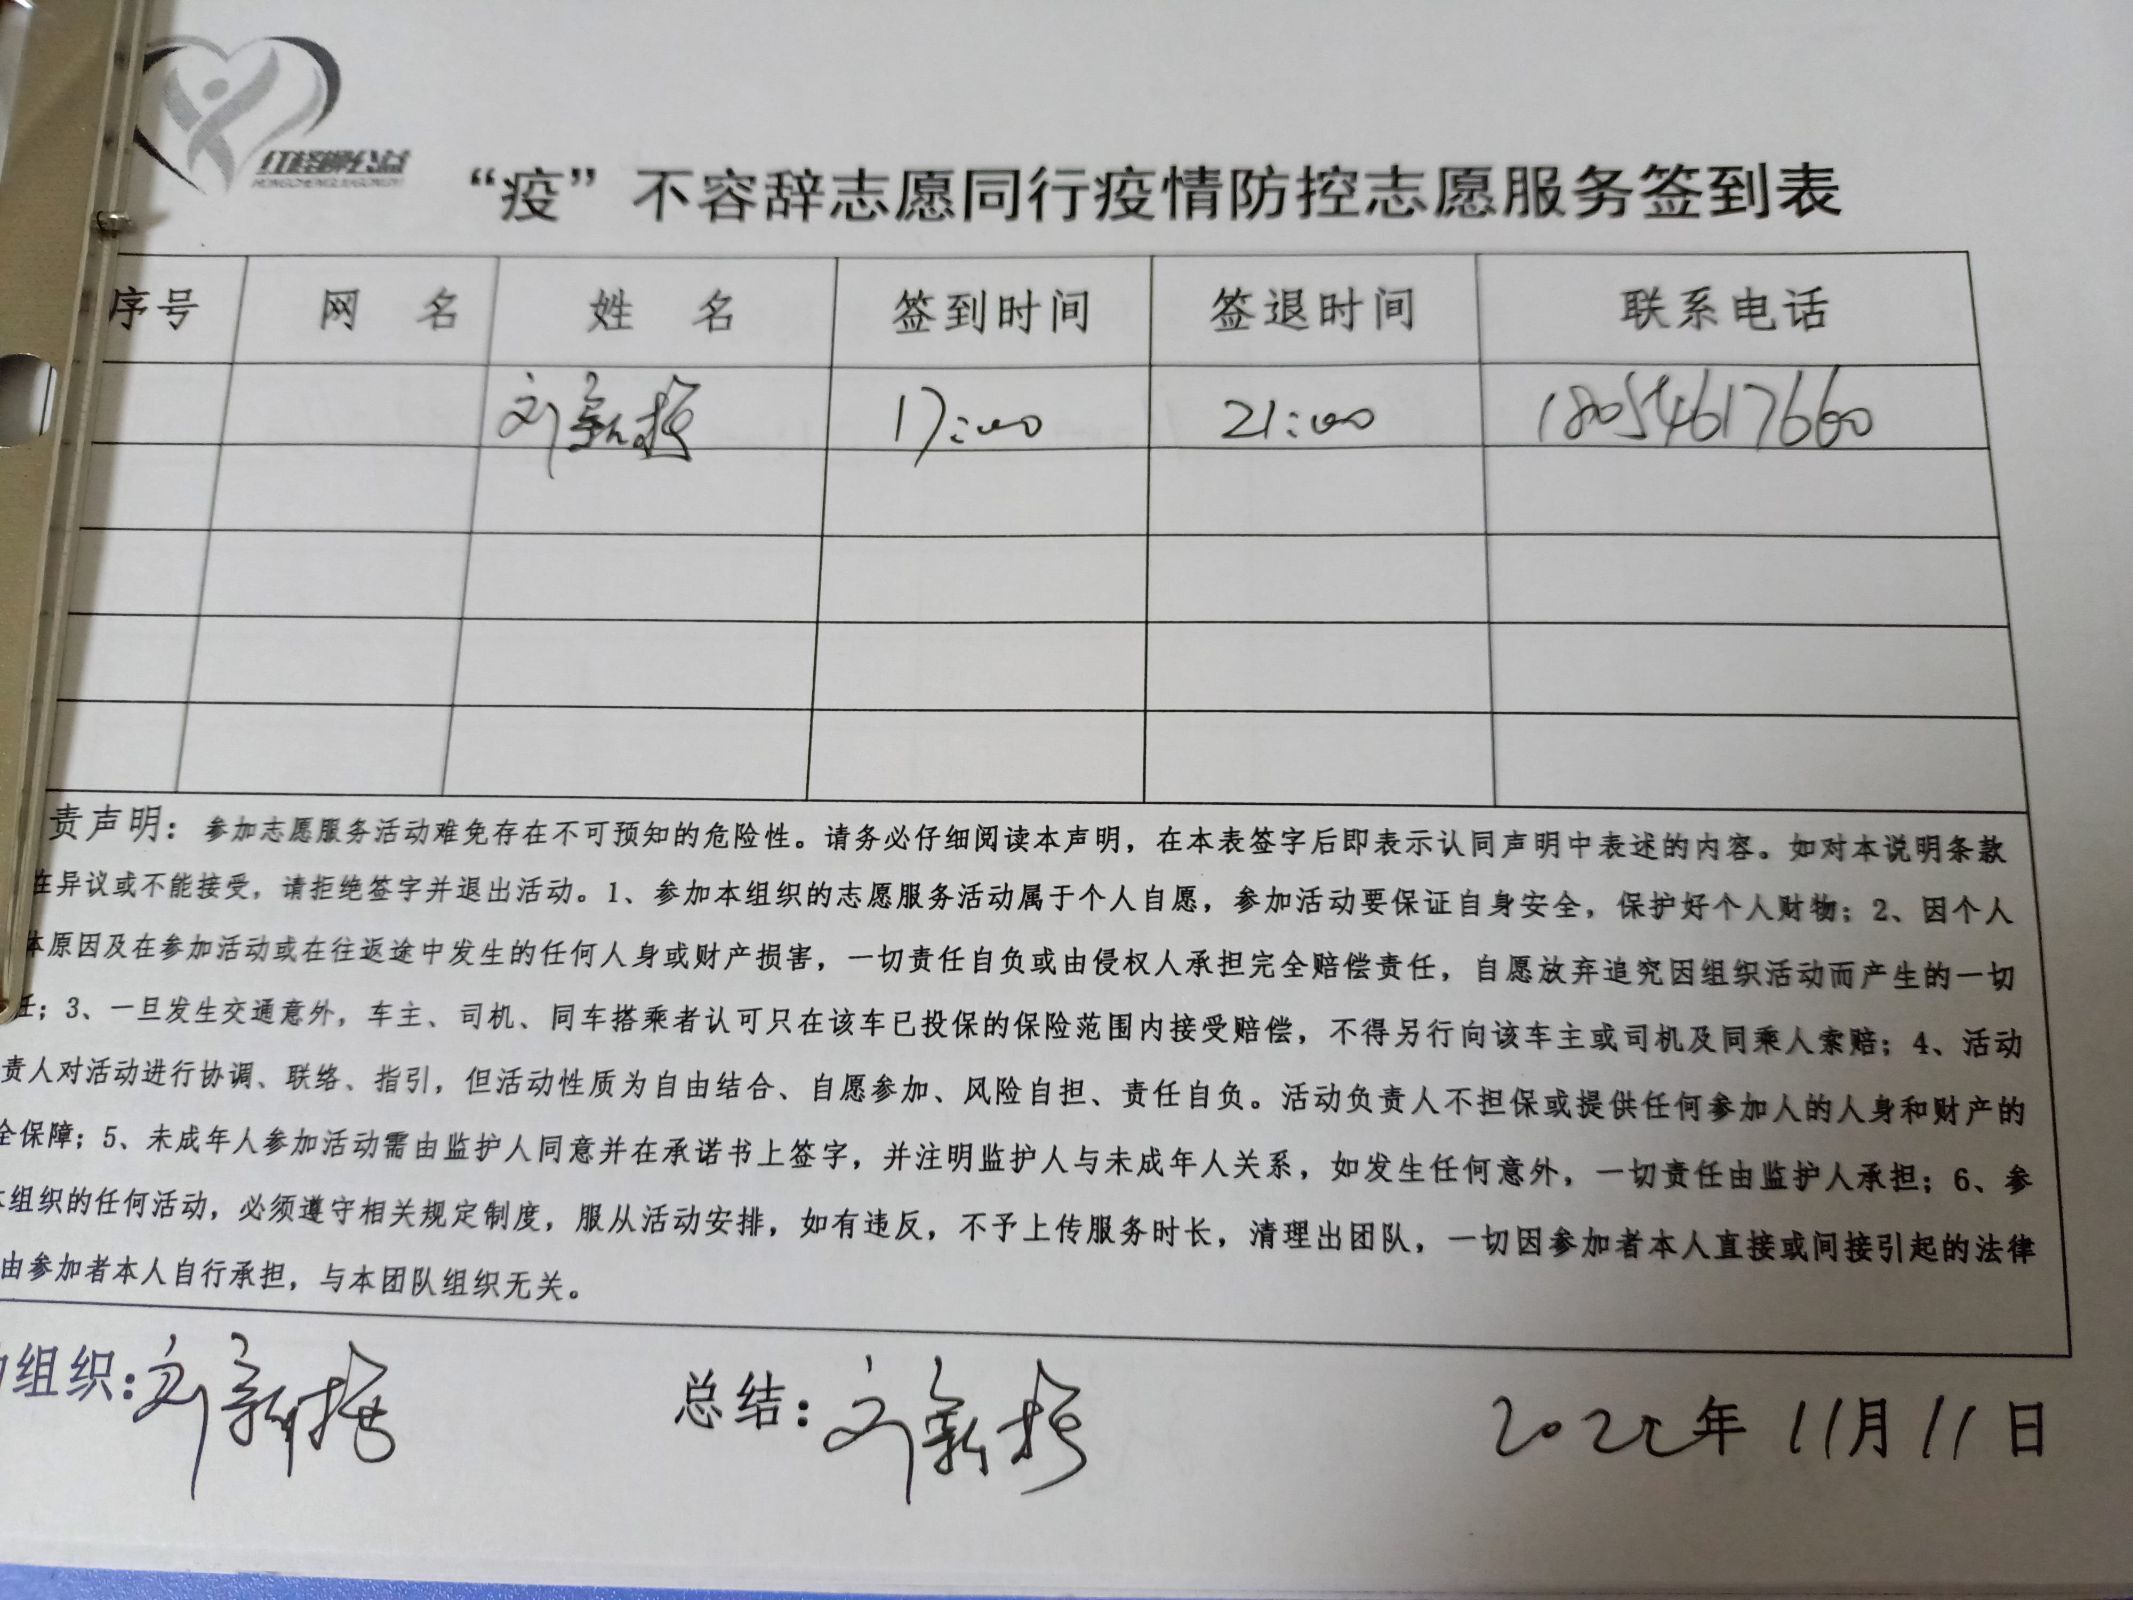 红橙郦公益
HONGCHENGLIGONGYI
“疫”不容辞志愿同行疫情防控志愿服务签到表
序号 网 名 姓 名 签到时间 签退时间 联系电话
刘新振 17:00 21:00 18054617660
责声明：参加志愿服务活动难免存在不可预知的危险性。请务必仔细阅读本声明，在本表签字后即表示认同声明中表述的内容。如对本说明条款
在异议或不能接受，请拒绝签字并退出活动。1、参加本组织的志愿服务活动属于个人自愿，参加活动要保证自身安全，保护好个人财物；2、因个人
体原因及在参加活动或在往返途中发生的任何人身或财产损害，一切责任自负或由侵权人承担完全赔偿责任，自愿放弃追究因组织活动而产生的一切
任；3、一旦发生交通意外，车主、司机、同车搭乘者认可只在该车已投保的保险范围内接受赔偿，不得另行向该车主或司机及同乘人索赔；4、活动
责人对活动进行协调、联络、指引，但活动性质为自由结合、自愿参加、风险自担、责任自负。活动负责人不担保或提供任何参加人的人身和财产的
全保障；5、未成年人参加活动需由监护人同意并在承诺书上签字，并注明监护人与未成年人关系，如发生任何意外，一切责任由监护人承担；6、参
本组织的任何活动，必须遵守相关规定制度，服从活动安排，如有违反，不予上传服务时长，清理出团队，一切因参加者本人直接或间接引起的法律
由参加者本人自行承担，与本团队组织无关。
动组织：刘新振 总结：刘新振 2022年11月11日